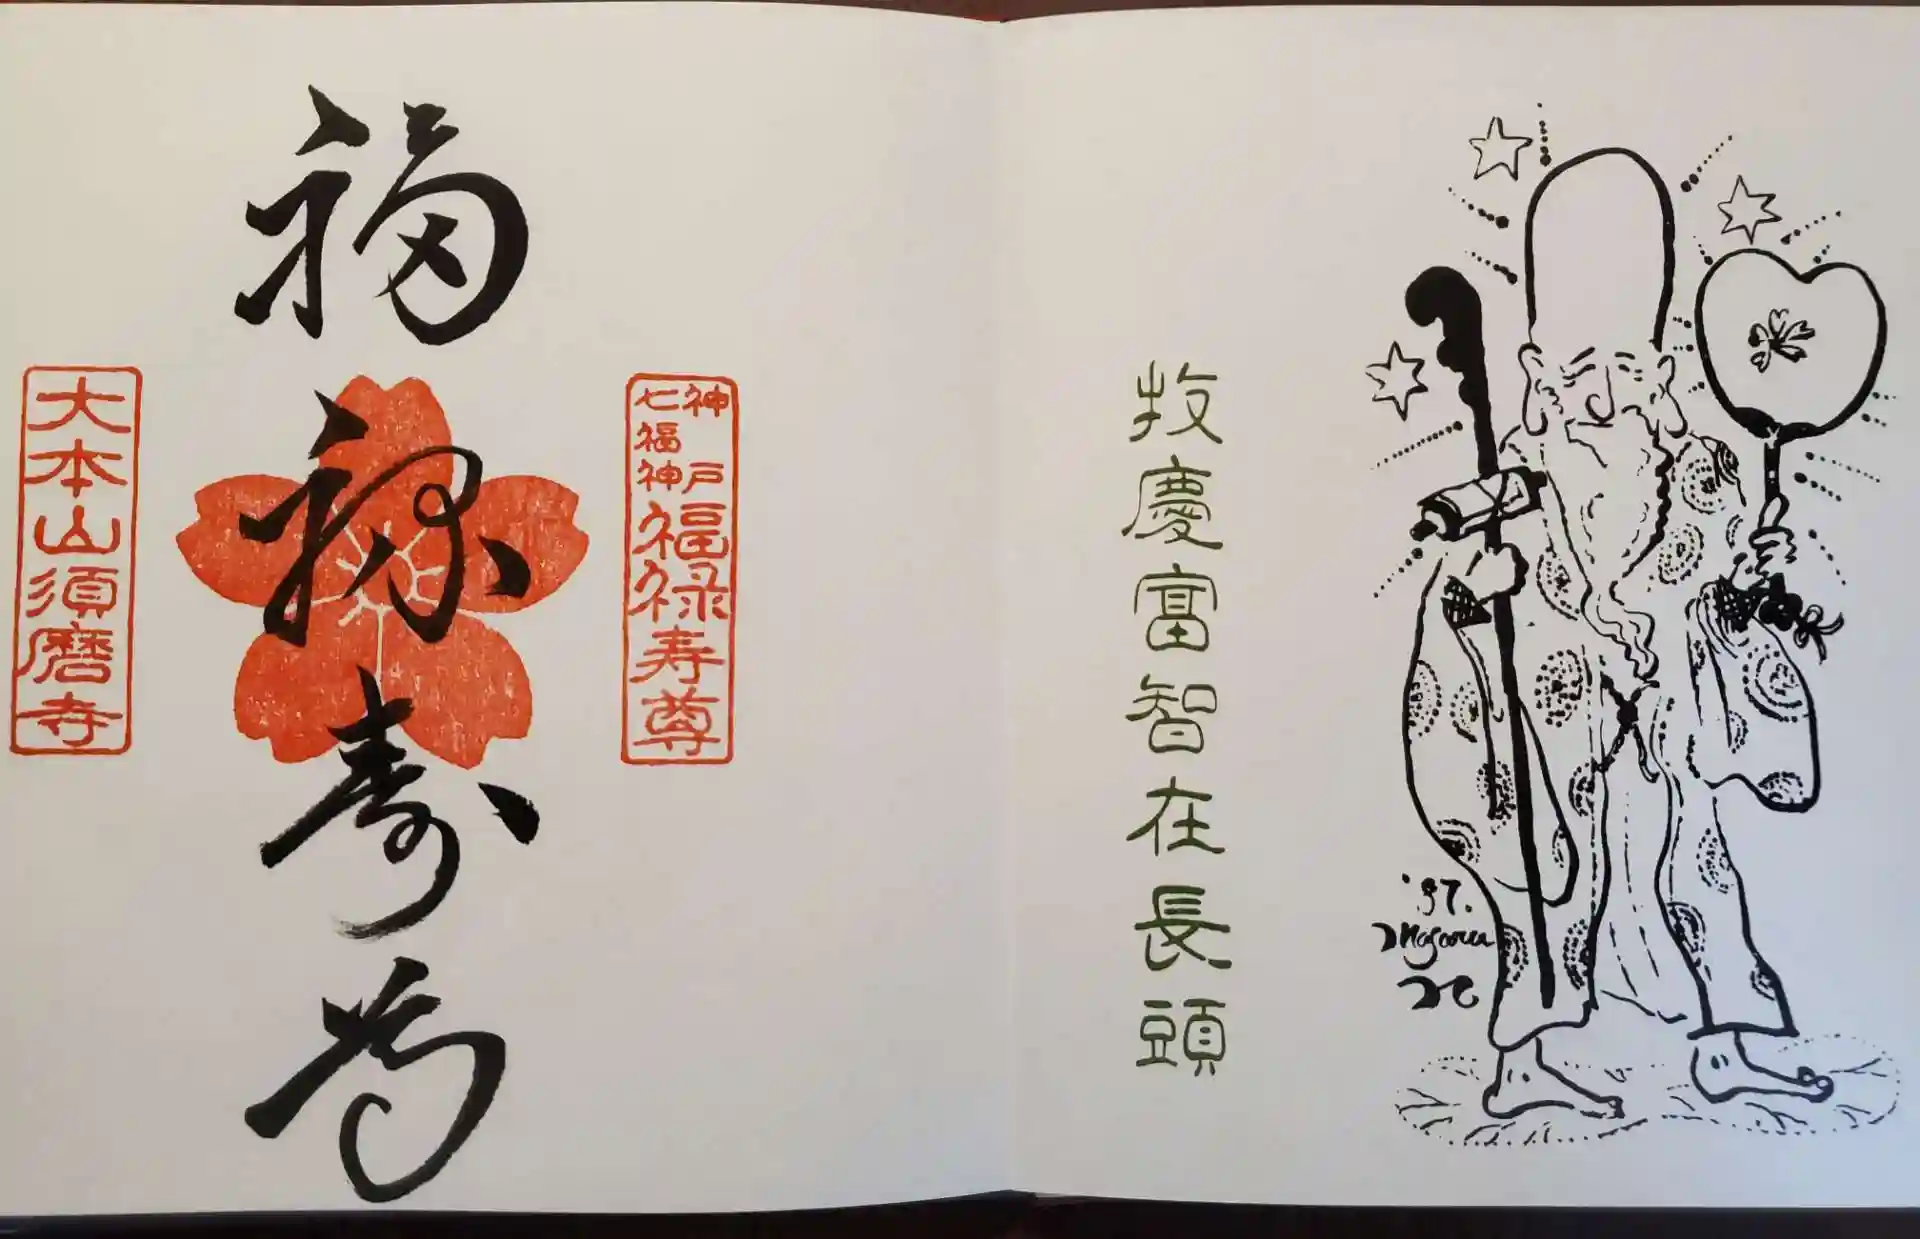 牧慶富智在長頭
'97.
神戸
七福神
福禄寿尊
福禄寿尊
大本山須磨寺